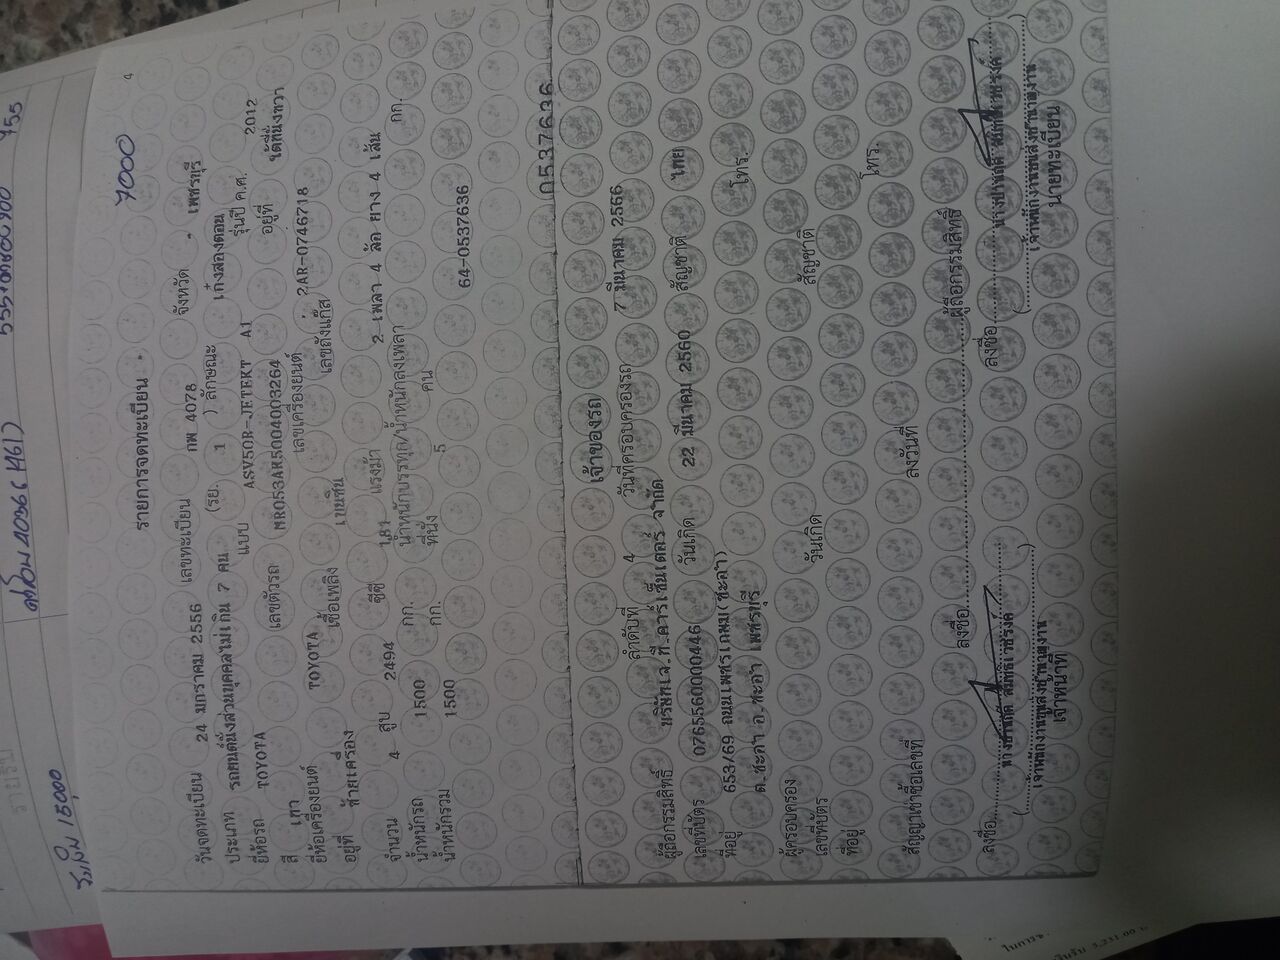 4
7000
รายการจดทะเบียน
วันจดทะเบียน 24 มกราคม 2556 เลขทะเบียน กพ 4078 จังหวัด เพชรบุรี
ประเภท รถยนต์นั่งส่วนบุคคลไม่เกิน 7 คน (รย. 1 ) ลักษณะ เก๋งสองตอน
ยี่ห้อรถ TOYOTA แบบ ASV50R-JETEKT A1 รุ่นปี ค.ศ. 2012
สี เทา เลขตัวรถ MR053AK5004003264 อยู่ที่ ใต้ที่นั่งขวา
ยี่ห้อเครื่องยนต์ TOYOTA เลขเครื่องยนต์ 2AR-0746718
อยู่ที่ ซ้ายเครื่อง เชื้อเพลิง เบนซิน เลขถังแก๊ส
จำนวน 4 สูบ 2494 ซีซี 181 แรงม้า 2 เพลา 4 ล้อ ยาง 4 เส้น
น้ำหนักรถ 1500 กก. น้ำหนักบรรทุก/น้ำหนักลงเพลา กก.
น้ำหนักรวม 1500 กก. ที่นั่ง 5 คน
64-0537636
0537636
เจ้าของรถ
ลำดับที่ 4 วันที่ครอบครองรถ 7 มีนาคม 2566
ผู้ถือกรรมสิทธิ์ บริษัทเจ.ที.คาร์เซ็นเตอร์ จำกัด
เลขที่บัตร 0765560000446 วันเกิด 22 มีนาคม 2560 สัญชาติ ไทย
ที่อยู่ 653/69 ถนนเพชรเกษม(ชะอำ) โทร.
ต.ชะอำ อ.ชะอำ เพชรบุรี
ผู้ครอบครอง
เลขที่บัตร วันเกิด สัญชาติ
ที่อยู่ โทร.
สัญญาเช่าซื้อเลขที่ ลงวันที่
ลงชื่อ ผู้ถือกรรมสิทธิ์
ลงชื่อ ลงชื่อ
เจ้าพนักงานขนส่งชำนาญงาน เจ้าพนักงานขนส่งชำนาญงาน
เจ้าหน้าที่ นายทะเบียน
15,000
455
3,231.00